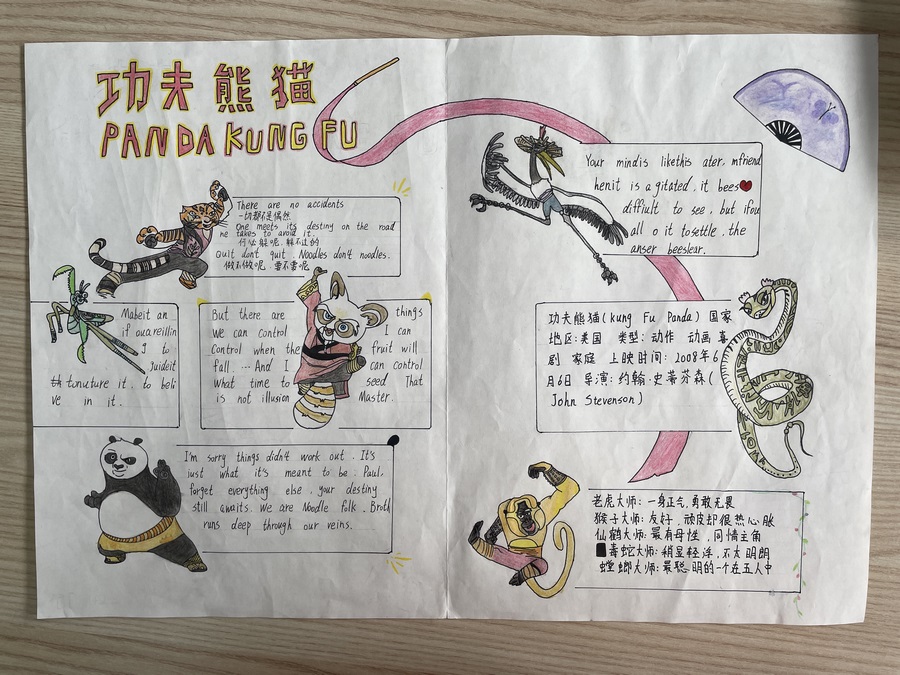 功夫熊猫
PANDA KUNG FU
There are no accidents
一切都不是偶然
One meets its destiny on the road
he takes to avoid it.
何必躲呢,躲不过的
Quit dont quit. Noodles don4 noodles.
做不做呢,要不要呢
Mabeit an
if ouareillin
g to
juideit
th tonuture it. to beli
ve in it.
But there are things
We can control I can
control when the fruit will
fall ... And I can control
What time to seed That
is not illusion Master.
I'm sorry things didn4 work out. It's
just what it's meant to be. Paul,
forget everything else. your destiny
still awaits. We are Noodle folk. Broth
runs deep through our veins.
Your mindis likethis ater, mfriend
henit is agitated, it bees
diffiult to see. but ifou
all o it tosettle. the
anser beeslear.
功夫熊猫(kung Fu Panda) 国家
地区:美国 类型:动作 动画 喜
剧 家庭 上映时间:2008年6
月6日 导演:约翰·史蒂芬森(
John Stevenson)
老虎大师:一身正气,勇敢无畏
猴子大师:友好,顽皮却很热心肠
仙鹤大师:最有母性,同情主角
毒蛇大师:稍显轻浮,不大明朗
螳螂大师:最聪明的一个在五人中